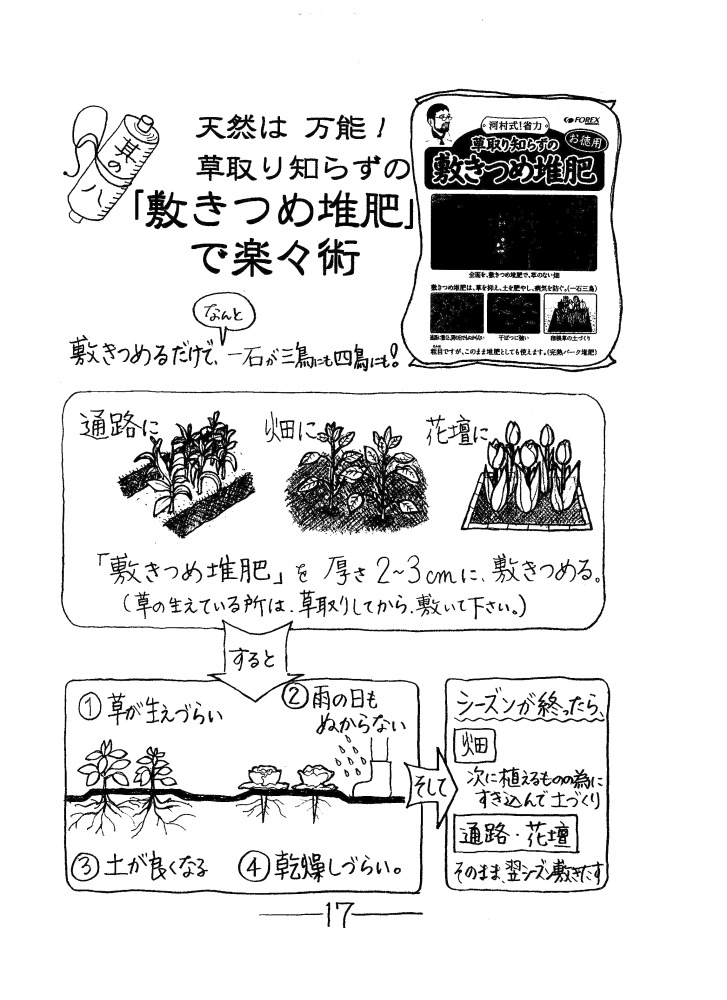 其の八
天然は 万能！
草取り知らずの
「敷きつめ堆肥」
で楽々術
河村式！省力
FOREX
草取り知らずの
お徳用
敷きつめ堆肥
全面を、敷きつめ堆肥で、草のない畑
敷きつめ堆肥は、草を抑え、土を肥やし、病気を防ぐ。(一石三鳥)
干ばつに強い
粗目ですが、このまま堆肥としても使えます。(完熟バーク堆肥)
なんと
敷きつめるだけで、一石が三鳥にも四鳥にも！
通路に
畑に
花壇に
「敷きつめ堆肥」を 厚さ2~3cmに、敷きつめる。
(草の生えている所は、草取りしてから、敷いて下さい。)
すると
① 草が生えづらい
② 雨の日も
ぬからない
③ 土が良くなる
④ 乾燥しづらい。
そして
シーズンが終ったら、
畑
次に植えるものの為に
すき込んで土づくり
通路・花壇
そのまま、翌シーズン敷きたす
17